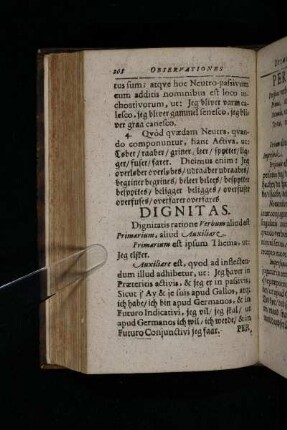 208 OBSERVATIONES
tus sum: atqve hoc Neutro-passivum
cum additis nominibus est loco in-
choativorum, ut: Jeg bliver varm ca-
lesco, jeg bliver gammel senesco, jeg bli-
ver graa canesco.
4. Qvòd qvædam Neutra, qvan-
do componuntur, fiant Activa, ut:
Løber/raaber/griner/leer/spotter/lig-
ger/fuser/farer. Dicimus enim: Jeg
overløber overløbes/udraaber udraabes/
begriner begrines/beleer belees/bespotter
bespottes/beligger beligges/overfuser
overfuses/overfarer overfares
DIGNITAS.
Dignitatis ratione Verbum aliud est
Primarium, aliud Auxiliare
Primarium est ipsum Thema, ut:
Jeg elsker.
Auxiliare est, qvod ad inflecten-
dum illud adhibetur, ut: Jeg haver in
Præteritis activis, & jeg er in passivis,
Sicut j' Ay & je suis apud Gallos, atq;
ich habe/ich bin apud Germanos, & in
Futuro Indicativi, jeg vil/jeg skal, ut
apud Germanos ich wil/ich werde/& in
Futuro Conjunctivi jeg faar. PER.